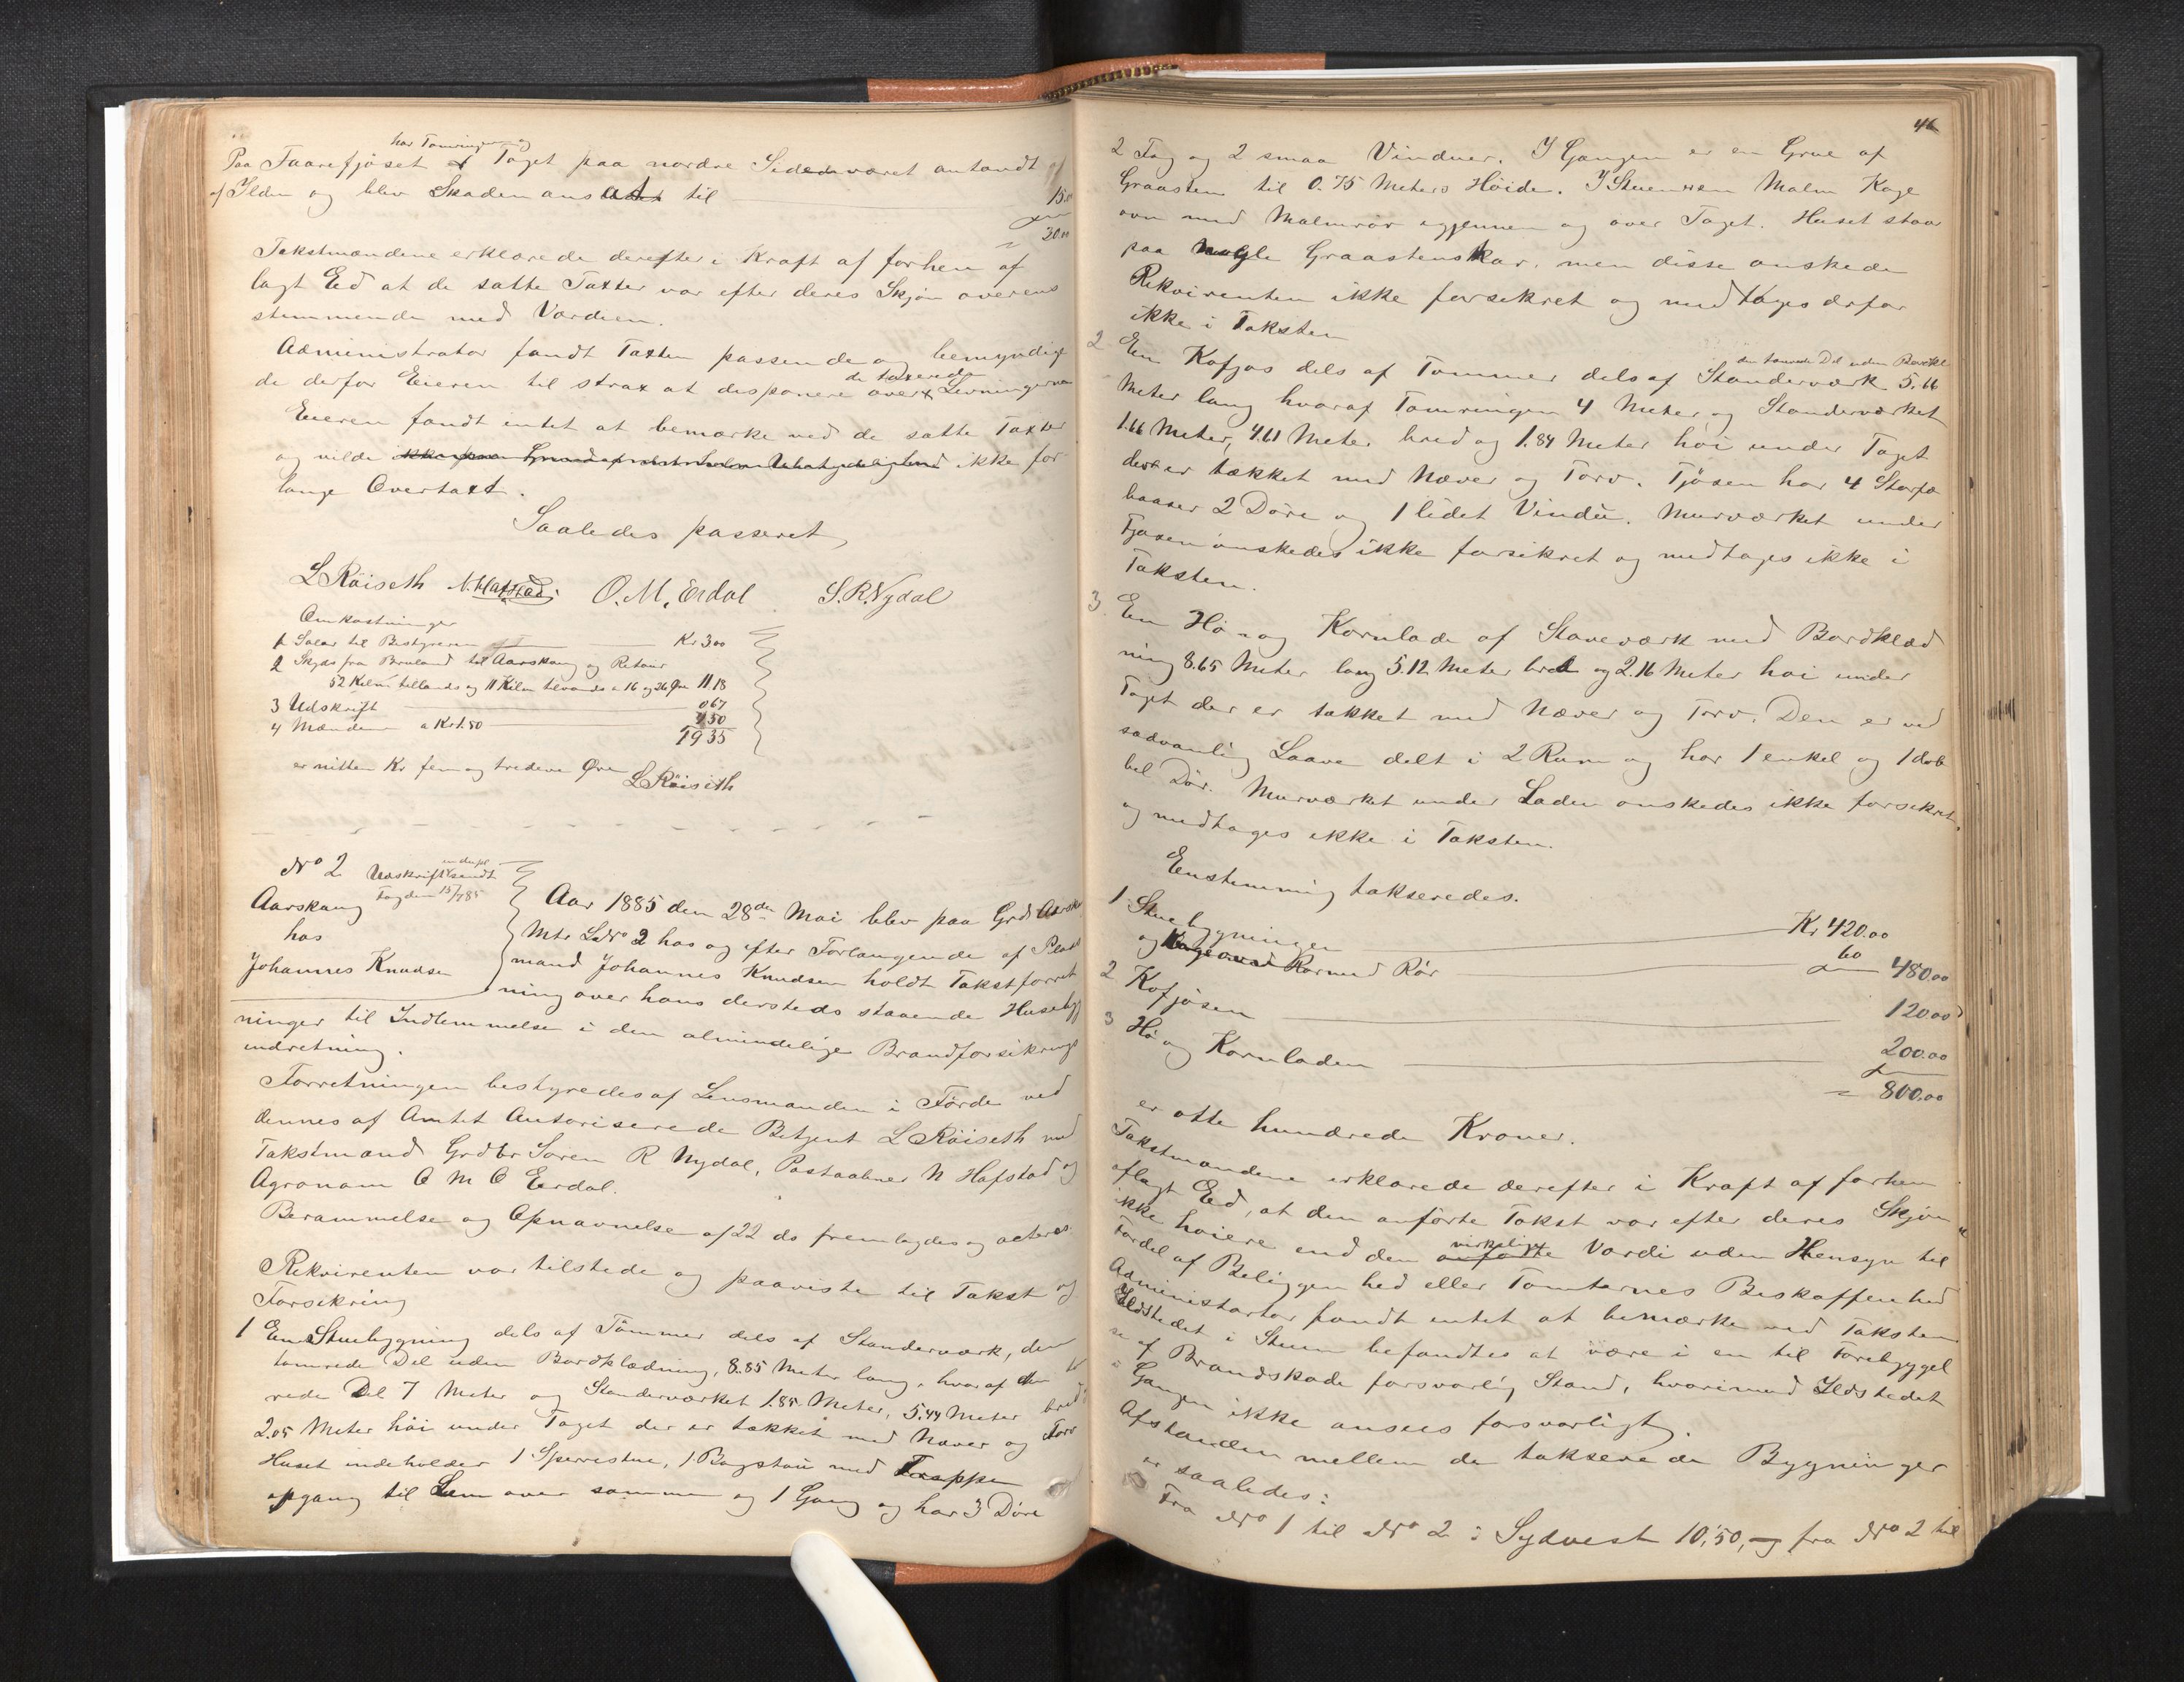 har Tømringen og
Paa Faarefjøset Taget paa nordre Side været antændt af
af Ilden og blev Skaden ansat til 15.00
= 30.00
Takstmændene erklærede derefter i Kraft af forhen af
lagt Ed at de satte Taxter var efter deres Skjøn overens
stemmende med Værdien.
Administrator fandt Taxten passende og bemyndige
de derfor Eieren til strax at disponere over de taxerede Levninger
Eieren fandt intet at bemærke ved de satte Taxter
og vilde ikke for
lange Overtaxt.
Saaledes passeret,
L Røiseth N. Hafstad. O. M. Erdal S. R. Nydal
Omkostninger
1 Salær til Bestyreren Kr 3 00
2 Skyds fra Bruland til Aarskaug og Retour
52 Kilm tillands og 11 Kilm tilvands a 16 og 26 Øre 11 18
3 Udskrift 0 67
4 Mændene a Kr 1.50 4 50
19 35
er nitten Kr fem og tredeve Øre L Røiseth
No 2 Udskrift sendt
Fogden 15/7 85
Aarskaug
hos
Johannes Knudsen
Aar 1885 den 28de Mai blev paa Grd Aarsk
Mtr LNo 2 hos og efter Forlangende af Plads
mand Johannes Knudsen holdt Takstforret
ning over hans dersteds staaende Husebyg
ninger til Indlemmelse i den almindelige Brandforsikrings
indretning.
Forretningen bestyredes af Lensmanden i Førde ved
dennes af Amtet Autoriserede Betjent L Røiseth med
Takstmænd Grdbr Søren R Nydal, Postaabner N Hafstad og
Agronom O M O Erdal.
Berammelse og Opnævnelse af 22 ds fremlagdes og acteres.
Rekvirenten var tilstede og paaviste til Takst og
Forsikring
1 En Stuebygning dels af Tømmer dels af Standerværk, den
tømrede Del uden Bordklædning, 8.85 Meter lang, hvoraf den tø
rede Del 7 Meter og Standerværket 1.85 Meter, 5.44 Meter bred
2.05 Meter høi under Taget der er tækket med Næver og Torv
Huset indeholder 1 Sperrestue, 1 Bagstøu med Trappe
opgang til Lem over samme og 1 Gang og har 3 Døre
46
2 Fag og 2 smaa Vinduer. I Gangen er en Grue af
Graasten til 0.75 Meters Høide. I Stuen en Malm Koge
ovn med Malmrør igjennem og over Taget. Huset staar
paa nogle Graastenskar, men disse ønskede
Rekvirenten ikke forsikret og medtages derfor
ikke i Taksten
den tømrede Del uden Bordkl
2 En Kofjøs dels af Tømmer dels af Standerværk 5.66
Meter lang hvoraf Tømringen 4 Meter og Standerværket
1.66 Meter, 4.61 Meter bred og 1.84 Meter høi under Taget
der er tækket med Næver og Torv. Fjøsen har 4 Storfæ
baaser 2 Døre og 1 lidet Vindu. Murværket under
Fjøsen ønskedes ikke forsikret og medtages ikke i
Taksten.
3. En Hø- og Kornlade af Staveværk med Bordklæd
ning 8.65 Meter lang 5.12 Meter bred og 2.16 Meter høi under
Taget der er tækket med Næver og Torv. Den er ved
sædvanlig Laave delt i 2 Rum og har 1 enkel og 1 dob
bel Dør. Murværket under Laden ønskedes ikke forsikret,
og medtages ikke i Taksten.
Eenstemmig takseredes.
1 Stuebygningen Kr 420.00
og med Rør 60 480.00
2 Kofjøsen 120.00
3 Hø og Kornladen 200.00
= 800.00
er otte hundrede Kroner.
Takstmændene erklærede derefter i Kraft af forhen
aflagt Ed, at den anførte Takst var efter deres Skjøn
ikke høiere end den virkelige Værdi uden Hensyn til
Fordel af Beliggenhed eller Tomternes Beskaffenhed
Administartor fandt intet at bemærke ved Taksten
Ildstedet i Stuen befandtes at være i en til Forebyggel
se af Brandskade forsvarlig Stand, hvorimod Ildstedet
i Gangen ikke ansees forsvarligt.
Afstanden mellem de takserede Bygninger
er saaledes:
Fra No 1 til No 2 i Sydvest 10,50, fra No 2 til